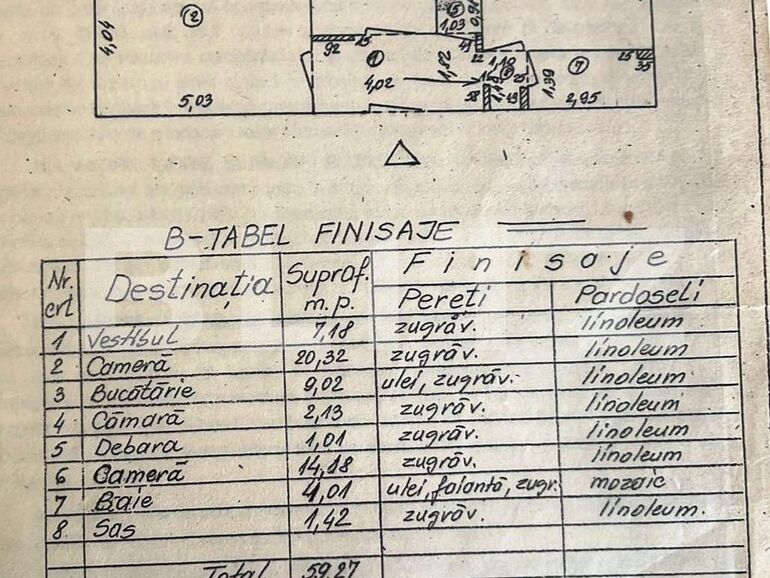 4,04
2
5,03
92
25
1
4,02
1,82
5
1,03
0,98
41
22
1,10
8
25
38
49
1,39
7
2,95
25
35
B-TABEL FINISAJE
Nr. crt
Destinația
Supraf. m.p.
Finisaje
Pereți
Pardoseli
1 Vestibul 7,18 zugrăv. linoleum
2 Cameră 20,32 zugrăv. linoleum
3 Bucătărie 9,02 ulei, zugrăv. linoleum
4 Cămară 2,13 zugrăv. linoleum
5 Debara 1,01 zugrăv. linoleum
6 Cameră 14,18 zugrăv. linoleum
7 Baie 4,01 ulei, faianță, zugr. mozaic
8. Sas 1,42 zugrăv. linoleum.
Total 59,27